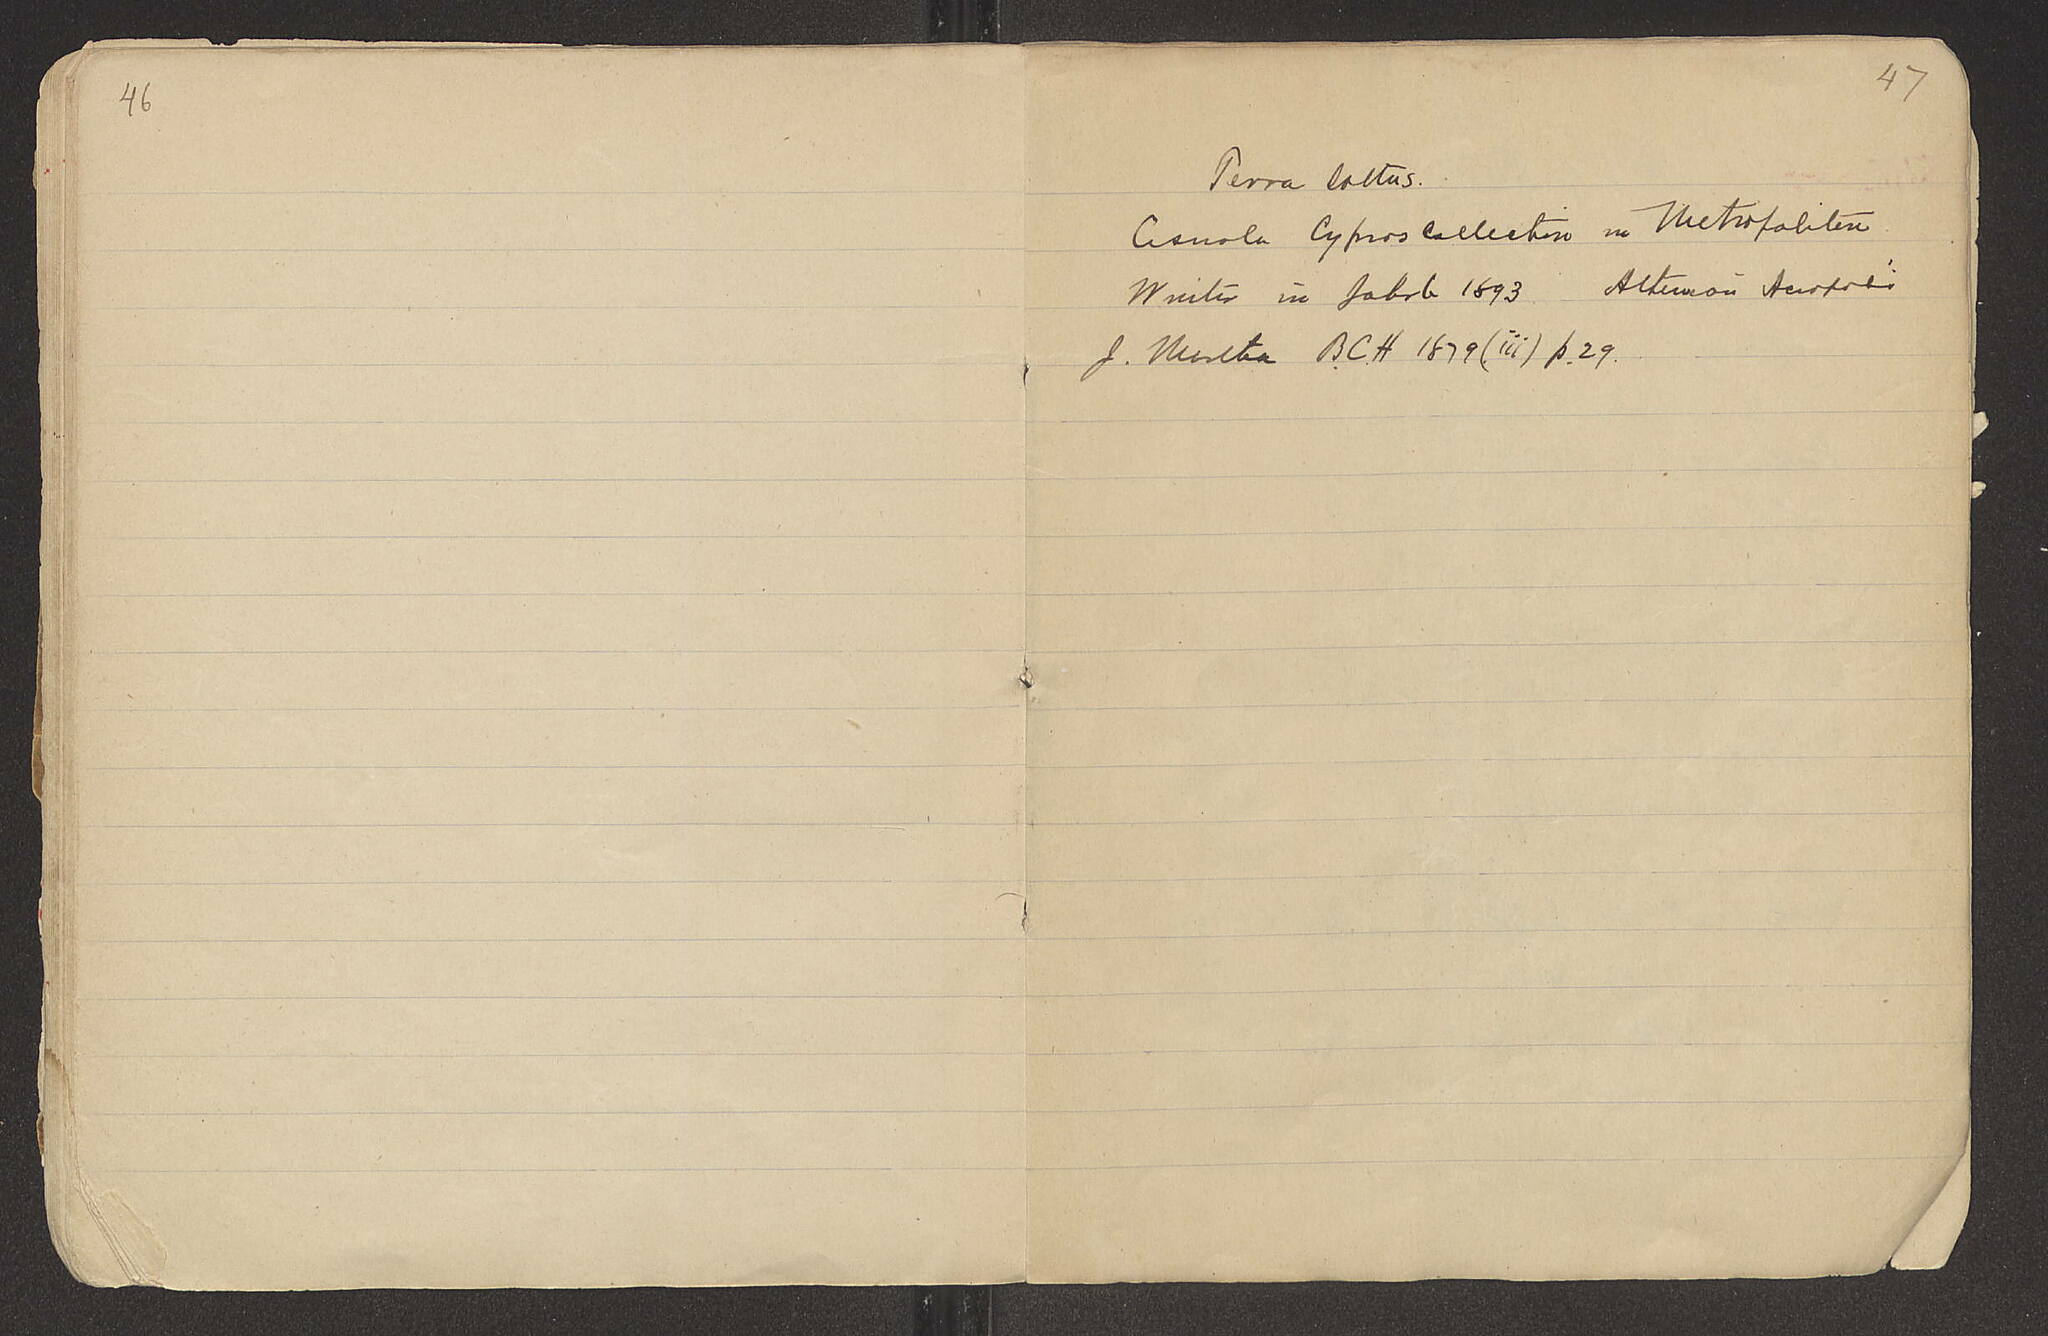 46
47
Terra Cottas.
Cesnola Cypros Collection in Metropolitan
Winter in Jahrb 1893 Athenian Acropolis
J. Martha B.C.H 1879 (iii) p. 29.